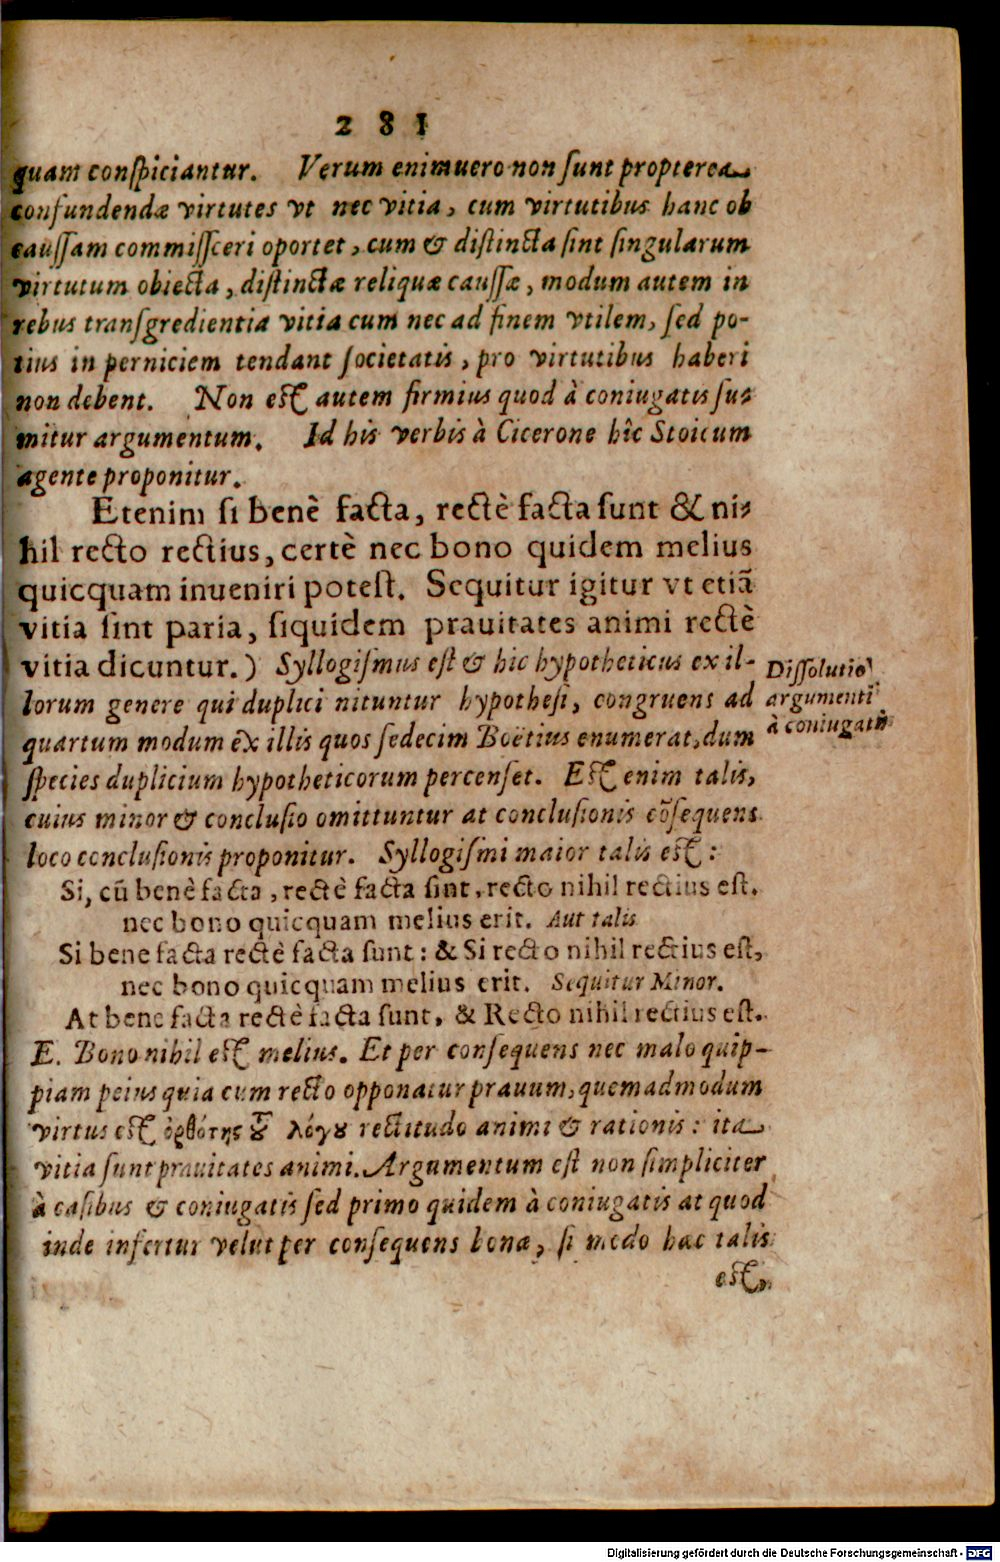 2 8 1
quam conſpiciantur. Verum enimuero non ſunt propterea
confundendæ virtutes vt nec vitia, cum virtutibus hanc ob
cauſſam commiſſceri oportet, cum & diſtincta ſint ſingularum
virtutum obiecta, diſtinctæ reliquæ cauſſæ, modum autem in
rebus tranſgredientia vitia cum nec ad finem vtilem, ſed po-
tius in perniciem tendant ſocietatis, pro virtutibus haberi
non debent. Non eſt autem firmius quod à coniugatis ſu-
mitur argumentum. Id his verbis à Cicerone hîc Stoicum
agente proponitur.
Etenim ſi benè facta, rectè facta ſunt & ni-
hil recto rectius, certè nec bono quidem melius
quicquam inueniri poteſt. Sequitur igitur vt etiã
vitia ſint paria, ſiquidem prauitates animi rectè
vitia dicuntur.) Syllogiſmus eſt & hic hypotheticus ex il-
lorum genere qui duplici nituntur hypotheſi, congruens ad
quartum modum ex illis quos ſedecim Boëtius enumerat, dum
ſpecies duplicium hypotheticorum percenſet. Eſt enim talis,
cuius minor & concluſio omittuntur at concluſionis cõſequens
loco concluſionis proponitur. Syllogiſmi maior talis eſt:
Diſſolutio
argumenti
à coniugatis
Si, cũ benè facta, rectè facta ſint, recto nihil rectius eſt.
nec bono quicquam melius erit. Aut talis
Si bene facta rectè facta ſunt: & Si recto nihil rectius eſt,
nec bono quicquam melius erit. Sequitur Minor.
At bene facta rectè facta ſunt, & Recto nihil rectius eſt.
E. Bono nihil eſt melius. Et per conſequens nec malo quip-
piam peius quia cum recto opponatur prauum, quemadmodum
virtus eſt ὀρθότης τȣ̃ λόγȣ rectitudo animi & rationis: ita
vitia ſunt prauitates animi. Argumentum eſt non ſimpliciter
à caſibus & coniugatis ſed primo quidem à coniugatis at quod
inde infertur velut per conſequens bona, ſi modo hac talis
eſt,
Digitalisierung gefördert durch die Deutsche Forschungsgemeinschaft - DFG